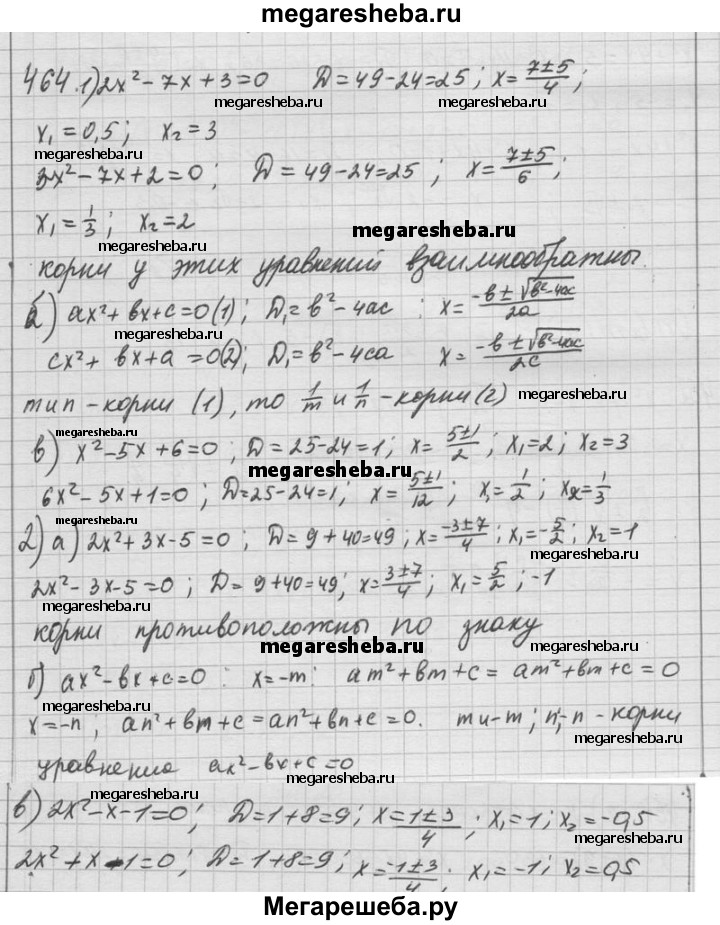 megaresheba.ru
464. 1) 2x² - 7x + 3 = 0 D = 49 - 24 = 25; x = (7±5)/4;
megaresheba.ru megaresheba.ru
x₁ = 0,5; x₂ = 3
megaresheba.ru
3x² - 7x + 2 = 0; D = 49 - 24 = 25; x = (7±5)/6;
x₁ = 1/3; x₂ = 2
megaresheba.ru
megaresheba.ru
корни у этих уравнений взаимнообратны
б) ax² + bx + c = 0 (1); D₁ = b² - 4ac; x = (-b ± √(b² - 4ac))/2a
cx² + bx + a = 0 (2); D₁ = b² - 4ca x = (-b ± √(b² - 4ac))/2c
m и n - корни (1), то 1/m и 1/n - корни (2)
megaresheba.ru
в) x² - 5x + 6 = 0; D = 25 - 24 = 1; x = (5±1)/2; x₁ = 2; x₂ = 3
megaresheba.ru
6x² - 5x + 1 = 0; D = 25 - 24 = 1; x = (5±1)/12; x₁ = 1/2; x₂ = 1/3
megaresheba.ru
2) а) 2x² + 3x - 5 = 0; D = 9 + 40 = 49; x = (-3±7)/4; x₁ = -5/2; x₂ = 1
megaresheba.ru
2x² - 3x - 5 = 0; D = 9 + 40 = 49; x = (3±7)/4; x₁ = 5/2; -1
megaresheba.ru
корни противоположны по знаку
megaresheba.ru
б) ax² - bx + c = 0: x = -m: am² + bm + c = am² + bm + c = 0
x = -n; an² + bm + c = an² + bn + c = 0. m и -m; n; -n - корни
megaresheba.ru
уравнения ax² - bx + c = 0
megaresheba.ru
в) 2x² - x - 1 = 0; D = 1 + 8 = 9; x = (1±3)/4; x₁ = 1; x₂ = -0,5
megaresheba.ru
2x² + x - 1 = 0; D = 1 + 8 = 9; x = (-1±3)/4; x₁ = -1; x₂ = 0,5
Мегарешеба.ру